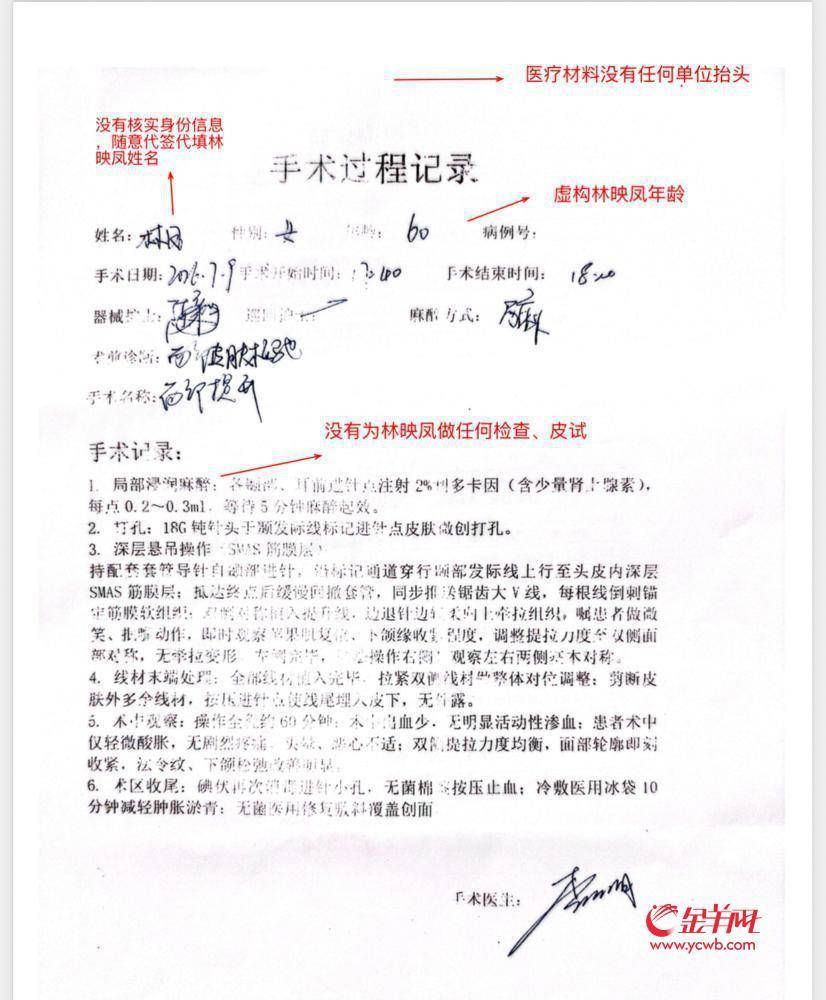 医疗材料没有任何单位抬头
没有核实身份信息
，随意代签代填林
映凤姓名
手术过程记录
虚构林映凤年龄
姓名： 性别：女 年龄：60 病例号：
手术日期： 手术开始时间： 手术结束时间：
器械护士： 巡回护士： 麻醉方式：局麻
术前诊断：面部皮肤松弛
手术名称：面部提升
没有为林映凤做任何检查、皮试
手术记录：
1. 局部浸润麻醉： 耳前进针点注射 2%利多卡因（含少量肾上腺素），
每点 0.2～0.3ml，等待 5 分钟麻醉起效。
2. 打孔：18G 钝针头于颞发际线标记进针点皮肤微创打孔。
3. 深层悬吊操作（SMAS 筋膜层）
持配套套管导针自颞部进针，沿标记通道穿行颞部发际线上行至头皮内深层
SMAS 筋膜层；抵达终点后缓慢回撤套管，同步推送锯齿大 V 线，每根线倒刺锚
定筋膜软组织；双侧对称植入提升线，边退针边轻柔向上牵拉组织，嘱患者做微
笑、 动作，即时观察苹果肌复位、下颌缘收紧程度，调整提拉力度至双侧面
部对称，无牵拉变形。左侧完毕， 操作右侧，观察左右两侧基本对称。
4. 线材末端处理：全部线材植入完毕，拉紧双侧线材做整体对位调整；剪断皮
肤外多余线材，按压进针点使线尾埋入皮下，无外露。
5. 术中观察：操作全程约 60 分钟；术中出血少，无明显活动性渗血；患者术中
仅轻微酸胀，无剧烈疼痛、头晕、恶心不适；双侧提拉力度均衡，面部轮廓即刻
收紧，法令纹、下颌松弛改善明显。
6. 术区收尾：碘伏再次消毒进针小孔，无菌棉 按压止血；冷敷医用冰袋 10
分钟减轻肿胀淤青；无菌医用修复敷料覆盖创面
手术医生：
金羊网
www.ycwb.com